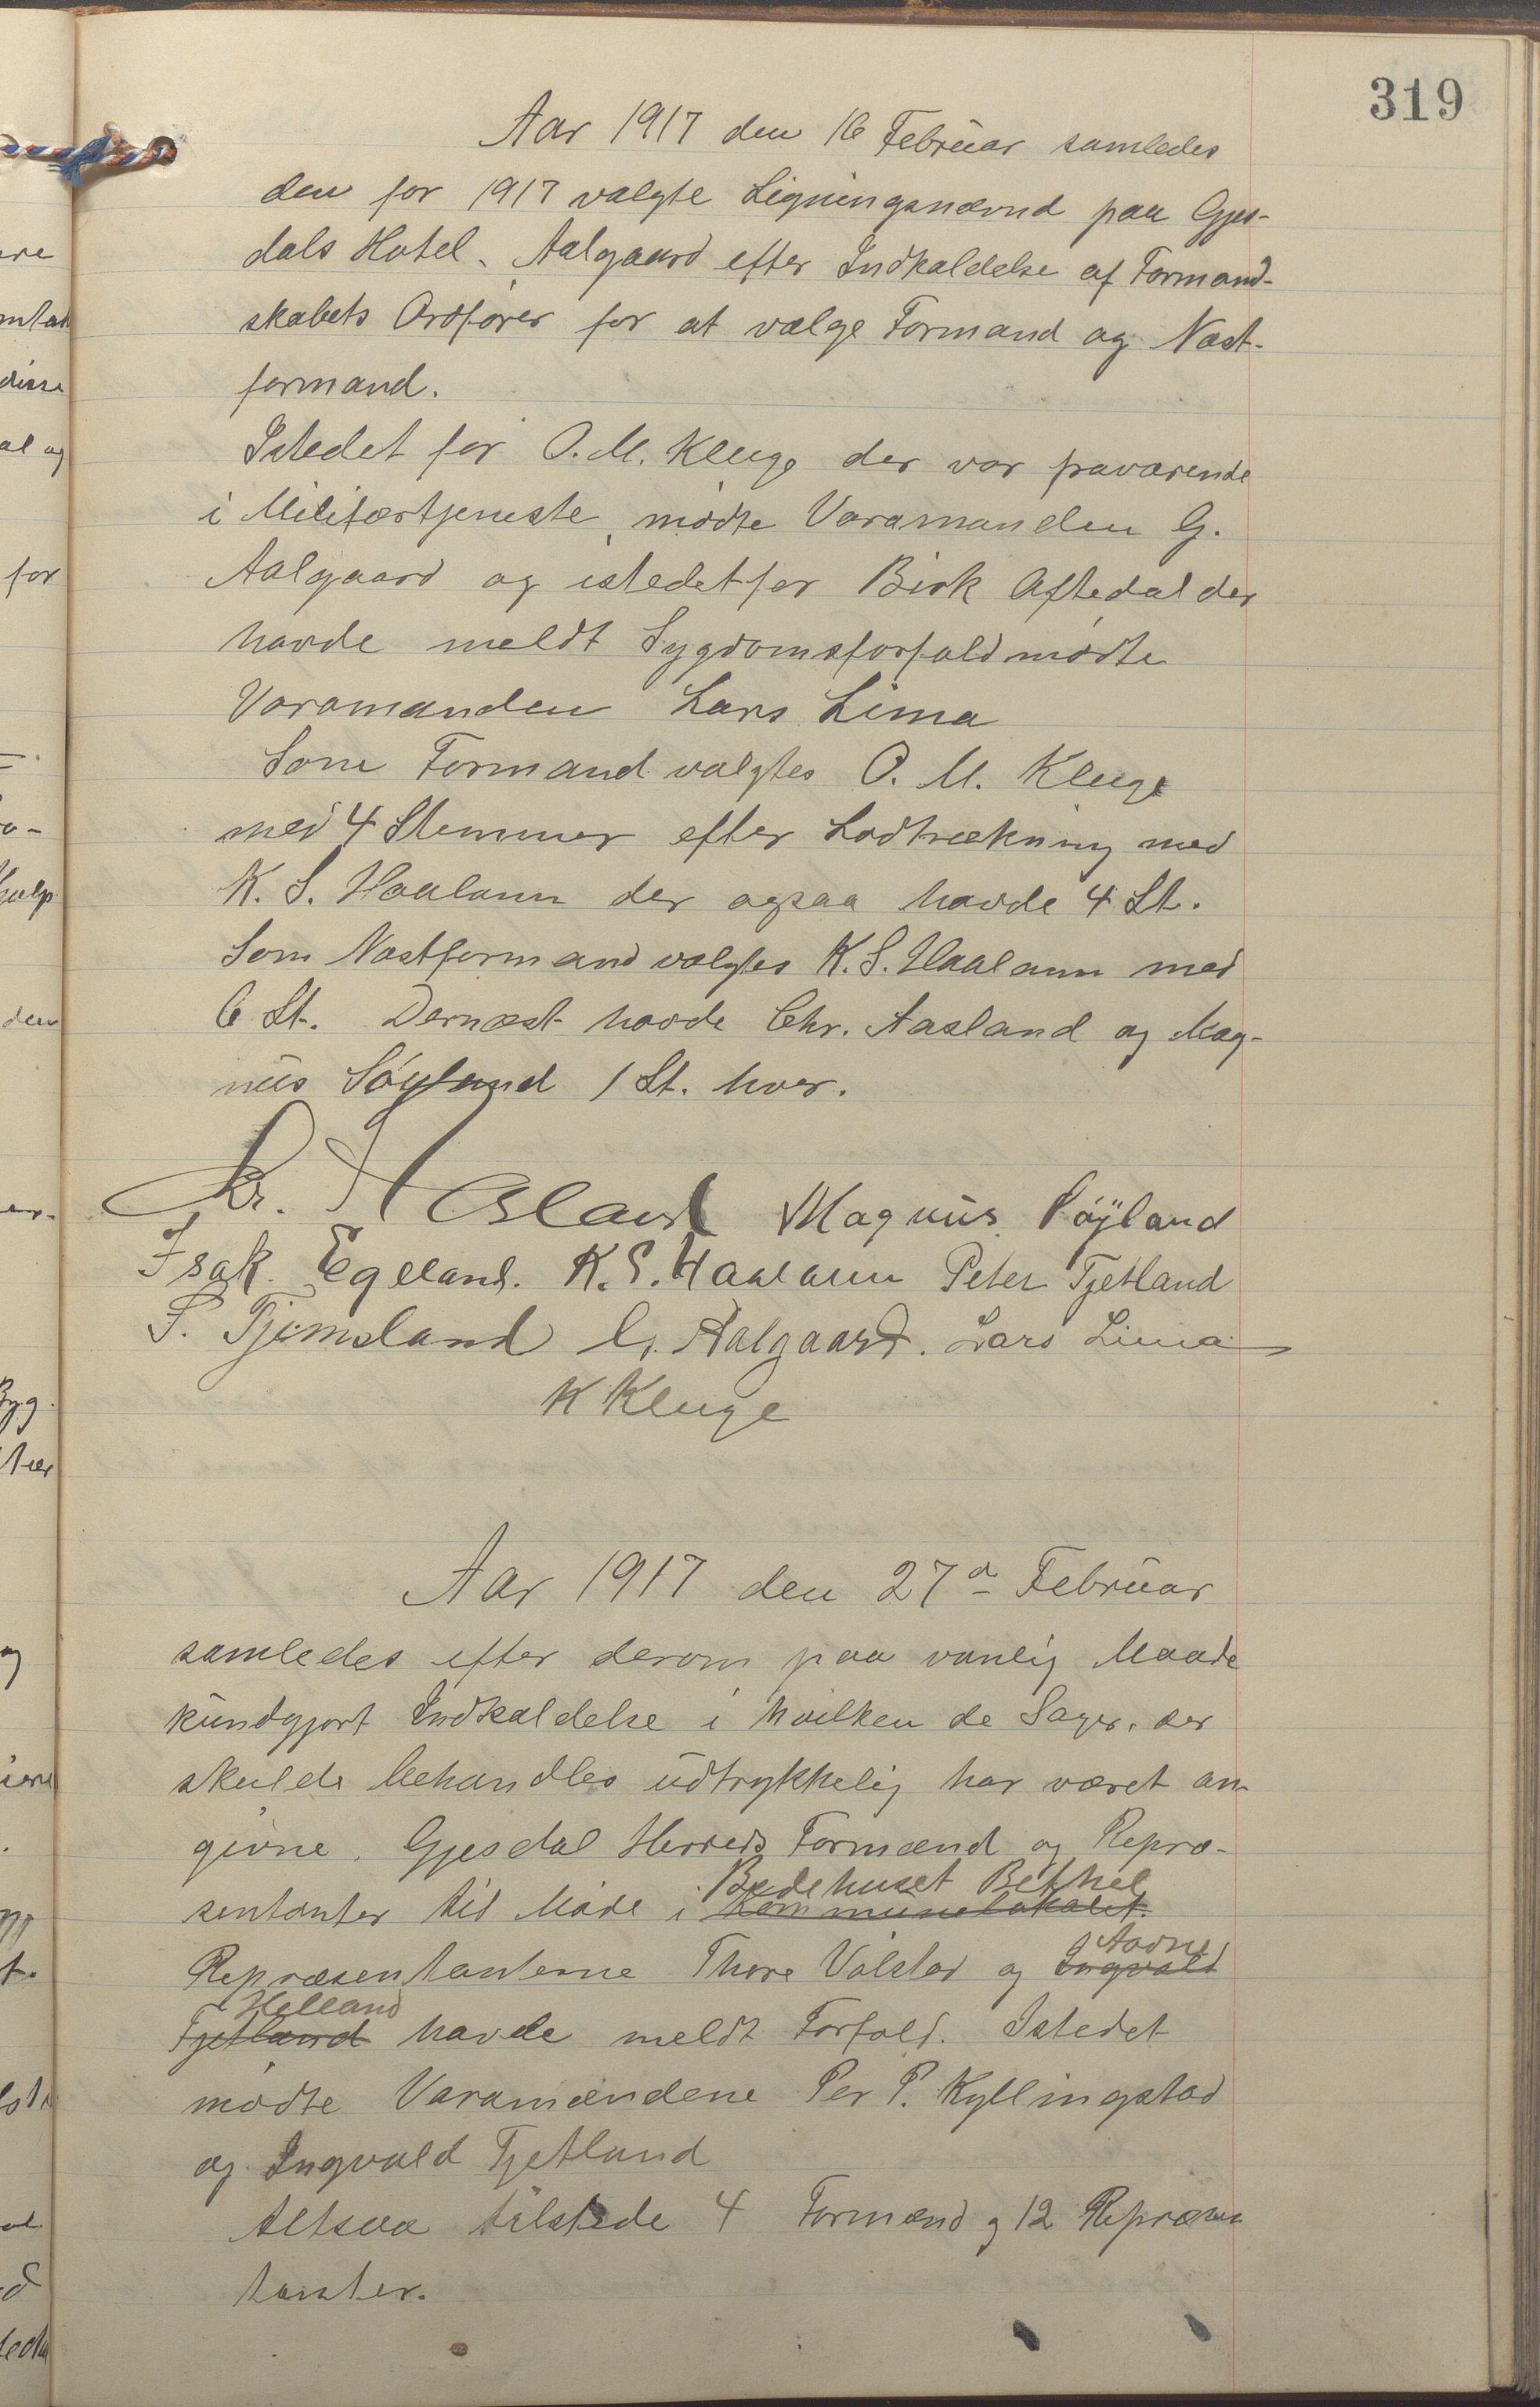 319
Aar 1917 den 16 Februar samledes
den for 1917 valgte Ligningsnævnd paa Gjes-
dals Hotel, Aalgaard efter Indkaldelse af Formand-
skabets Ordfører for at vælge Formand og Næst-
formand.
Istedet for O. M. Kluge der var fraværende
i Militærtjeneste, mødte Varamanden G.
Aalgaard og istedetfor Birk Oftedal der
havde meldt Sygdomsforfald mødte
Varamanden Lars Lima
Som Formand valgtes O. M. Kluge
med 4 Stemmer efter Lodtrækning med
K. S. Haaland der ogsaa havde 4 St.
Som Næstformand valgtes K. S. Haaland med
6 St. Dernæst havde Chr. Aasland og Mag-
nus Søyland 1 St. hver.
Kr. Aasland Magnus Søyland
Isak Egeland. K. S. Haaland Peter Tjetland
S. Tjemsland G. Aalgaard. Lars Lima
K Kluge
Aar 1917 den 27de Februar
samledes efter derom paa vanlig Maade
kundgjort Indkaldelse i hvilken de Sager, der
skulde behandles udtrykkelig har været an-
givne, Gjesdal Herreds Formænd og Repræ-
Bedehuset Bethel
sentanter til Møde i Kommunelokalet.
Aadne
Repræsentanterne Thore Válstad og Ingvald
Helland
Tjetland havde meldt Forfald. Istedet
mødte Varamændene Per P. Kyllingstad
og Ingvald Tjetland
Altsaa tilstede 4 Formænd og 12 Repræsen
tanter.